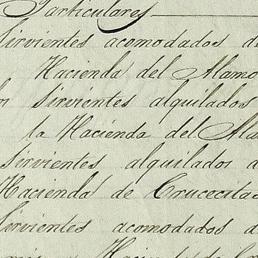 Particulares
Sirvientes acomodados de
Hacienda del Alamo
Sirvientes alquilados
la Hacienda del Ala
Sirvientes alquilados a
Hacienda de Crucecitas
Sirvientes acomodados d